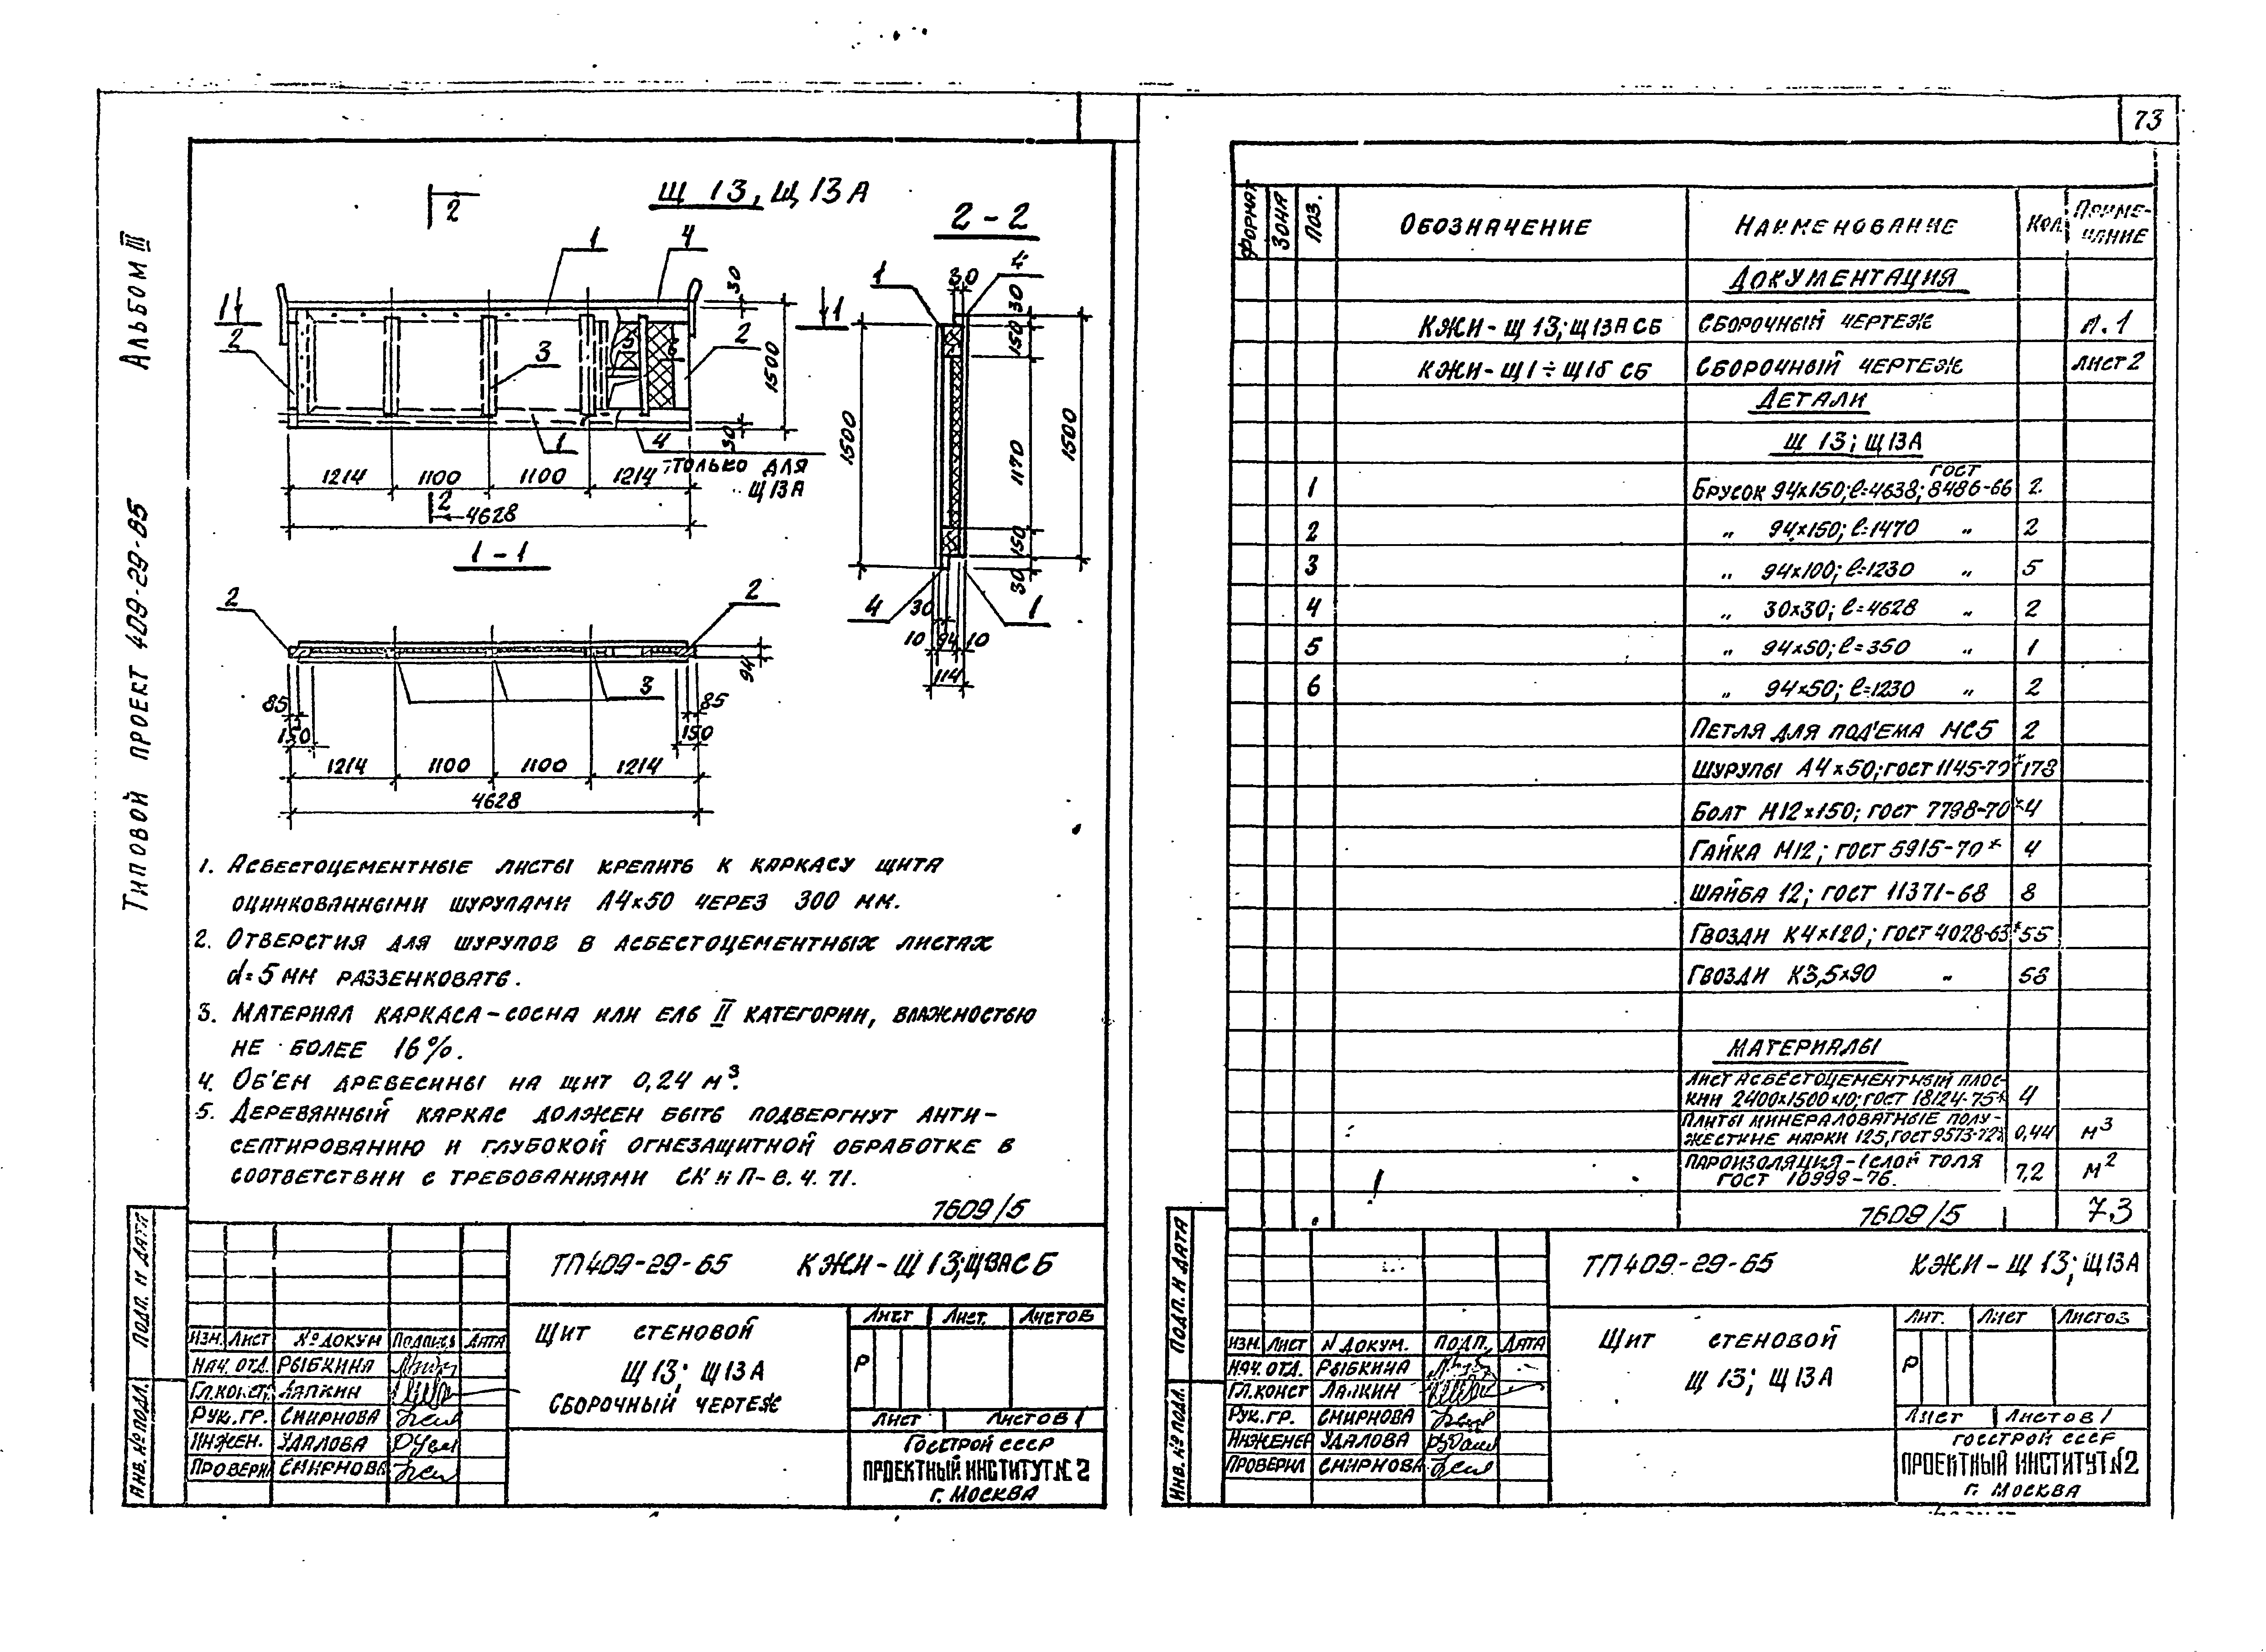 Альбом III
Типовой проект 409-29-65
Щ 13, Щ13А
2
2-2
1
4
30
1
2
3
2
1500
5
6
1
4
30
только для
Щ13А
1214 1100 1100 1214
2
4628
1
4
30
1
30
150
1500
1170
1500
150
30
4
30
1
10 94 10
114
1-1
2
2
94
3
85
85
150
150
1214 1100 1100 1214
4628
1. Асбестоцементные листы крепить к каркасу щита
оцинкованными шурупами А4х50 через 300 мм.
2. Отверстия для шурупов в асбестоцементных листах
d=5 мм раззенковать.
3. Материал каркаса-сосна или ель II категории, влажностью
не более 16%.
4. Об'ем древесины на щит 0,24 м³.
5. Деревянный каркас должен быть подвергнут анти-
септированию и глубокой огнезащитной обработке в
соответствии с требованиями СН и П-В.4.71.
7609/5
ТП409-29-65 КЖИ-Щ 13; Щ13А СБ
Щит стеновой
Щ 13; Щ13А
Сборочный чертеж
Лист Лист Листов
Р
Лист Листов 1
Госстрой СССР
Проектный институт № 2
г. Москва
Изм. Лист № докум Подпись Дата
Нач. отд. Рыбкина
Гл.констр. Лапкин
Рук. гр. Смирнова
Инжен. Удалова
Проверил Смирнова
Подп. и дата
Инв. № подл.
73
Формат Зона Поз. Обозначение Наименование Кол. Примечание
Документация
КЖИ-Щ 13; Щ13А СБ Сборочный чертеж л. 1
КЖИ-Щ1÷Щ16 СБ Сборочный чертеж лист 2
Детали
Щ 13; Щ13А
1 Брусок 94х150; ℓ=4638; ГОСТ 8486-66 2
2 „ 94х150; ℓ=1470 „ 2
3 „ 94х100; ℓ=1230 „ 5
4 „ 30х30; ℓ=4628 „ 2
5 „ 94х50; ℓ=350 „ 1
6 „ 94х50; ℓ=1230 „ 2
Петля для под'ема МС5 2
Шурупы А4х50; ГОСТ 1145-70* 178
Болт М12х150; ГОСТ 7798-70* 4
Гайка М12; ГОСТ 5915-70* 4
Шайба 12; ГОСТ 11371-68 8
Гвозди К4х120; ГОСТ 4028-63* 55
Гвозди К3,5х90 „ 58
Материалы
Лист асбестоцементный плос-
кий 2400х1500х10; ГОСТ 18124-75* 4
Плиты минераловатные полу-
жесткие марки 125, ГОСТ 9573-72* 0,44 м³
Пароизоляция-1слой толя
ГОСТ 10999-76. 7,2 м²
7609/5 73
ТП409-29-65 КЖИ-Щ 13; Щ13А
Щит стеновой
Щ 13; Щ13А
Лит. Лист Листов
Р
Лист Листов 1
Госстрой СССР
Проектный институт №2
г. Москва
Изм. Лист N докум. Подп. Дата
Нач. отд. Рыбкина
Гл.конст Лапкин
Рук. гр. Смирнова
Инженер Удалова
Проверил Смирнова
Подп. и дата
Инв. № подл.